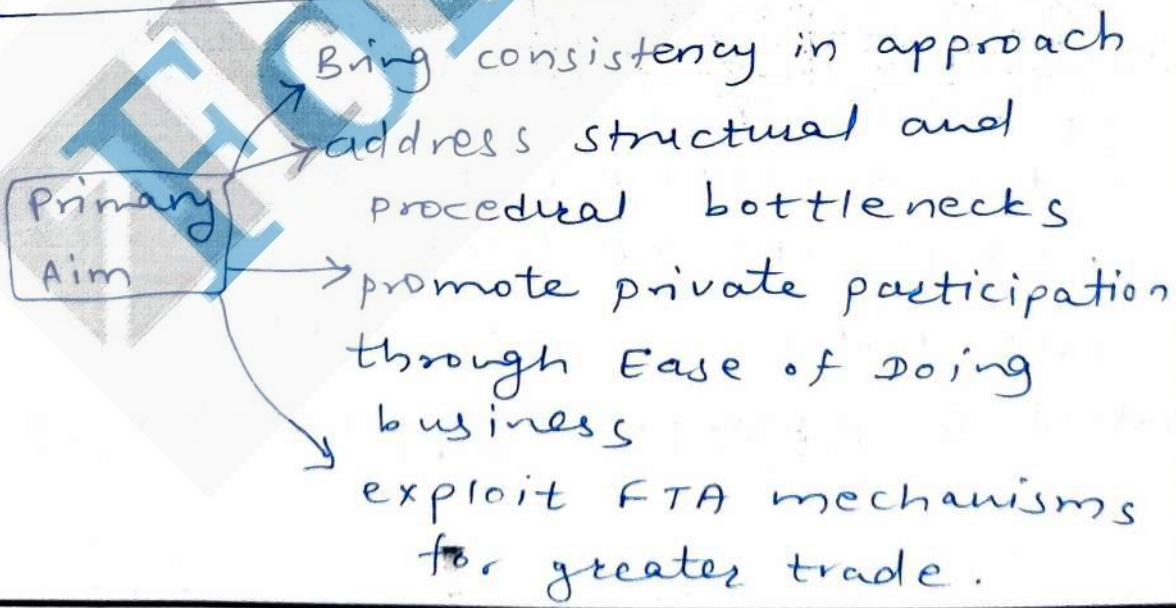 Bring consistency in approach
address structural and
procedural bottlenecks
Primary
Aim
promote private participation
through Ease of Doing
business
exploit FTA mechanisms
for greater trade.